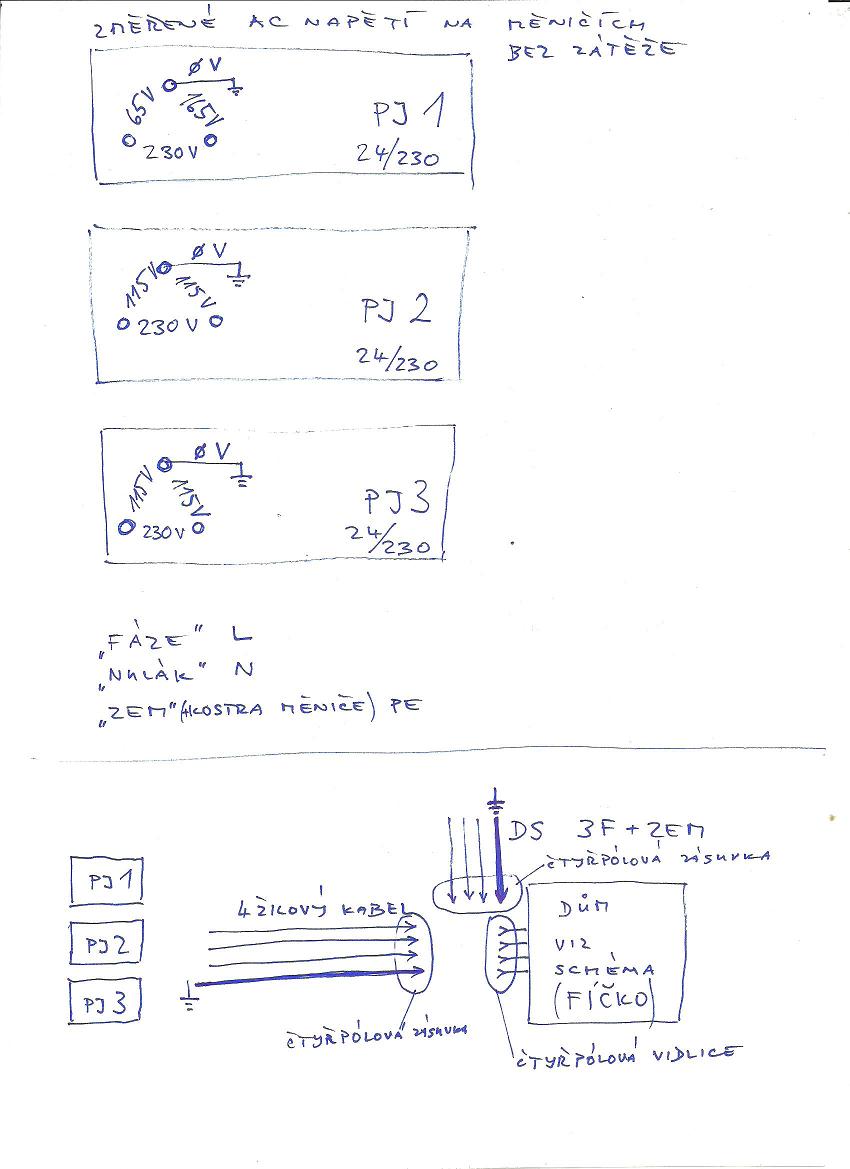 ZMĚŘENÉ AC NAPĚTÍ NA MĚNIČÍCH
BEZ ZÁTĚŽE
Ø V
65V
165V
230V
PJ 1
24/230
Ø V
115V
115V
230 V
PJ 2
24/230
Ø V
115V
115V
230 V
PJ3
24/230
„FÁZE" L
„NULÁK" N
„ZEM"(+KOSTRA MĚNIČE) PE
DS 3F + ZEM
ČTYŘPÓLOVÁ ZÁSUVKA
PJ1
PJ2
PJ3
4 ŽILOVÝ KABEL
DŮM
VIZ
SCHÉMA
(FÍČKO)
ČTYŘPÓLOVÁ ZÁSUVKA
ČTYŘPÓLOVÁ VIDLICE